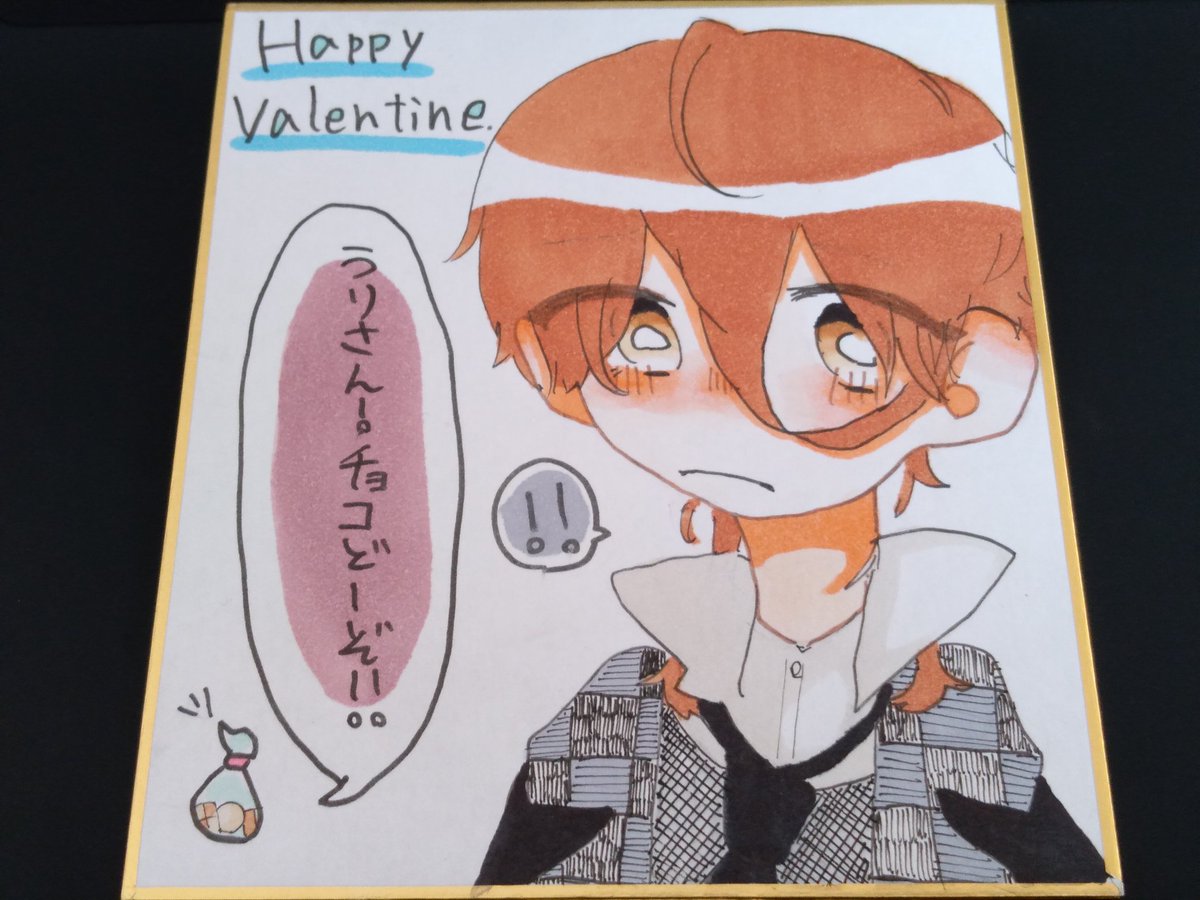 Happy
Valentine.
うりさんー。チョコどーぞ!!
!!